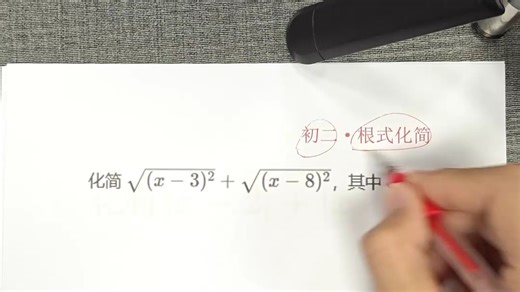 初二·根式化简
化简 $\sqrt{(x-3)^2}+\sqrt{(x-8)^2}$,其中